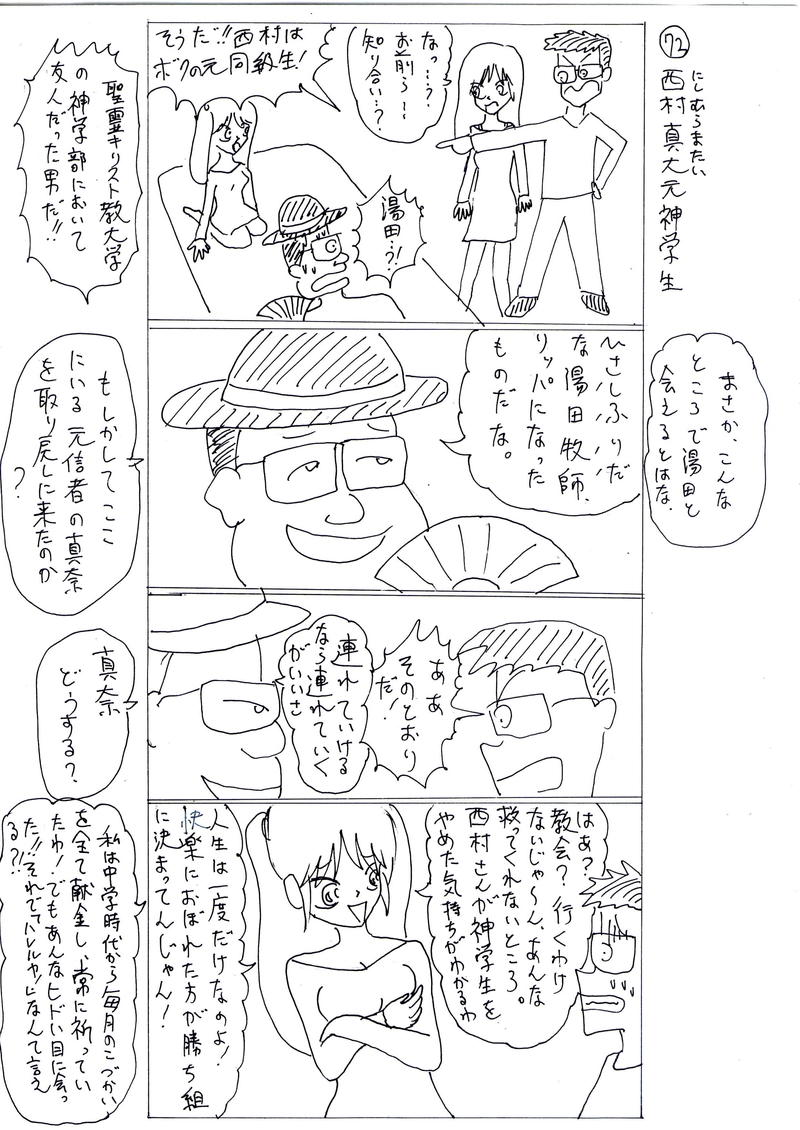 72
西村真大元神学生
にしむらまたい
なっ…？
お前ら…
知り合い…？
そうだ!!西村は
ボクの元同級生！
湯田…?!
聖霊キリスト教大学
の神学部において
友人だった男だ!!
まさか、こんな
ところで湯田と
会えるとはな。
ひさしぶりだ
な湯田牧師、
リッパになった
ものだな。
もしかしてここ
にいる元信者の真奈
を取り戻しに来たのか
？
ああ
そのとおり
だ！
連れていける
なら連れていく
がいいさ
真奈
どうする？
はあ？
教会？行くわけ
ないじゃ〜ん、あんな
救ってくれないところ。
西村さんが神学生を
やめた気持ちがわかるわ
人生は一度だけなのよ！
快楽におぼれた方が勝ち組
に決まってんじゃん！
私は中学時代から毎月のこづかい
を全て献金し、常に祈ってい
たわ！でもあんなヒドい目に会っ
た!!それでハレルヤ!になんて言え
る?!!